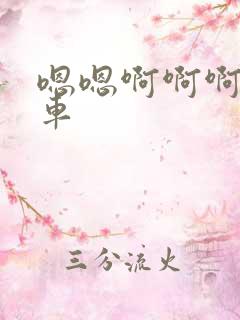 嗯嗯啊啊啊
車
三分流火